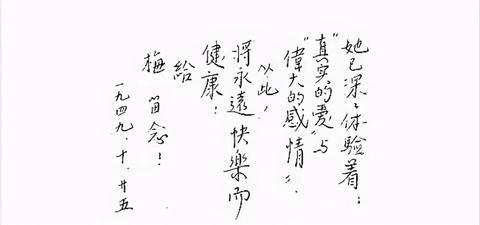 她已深々体验着:
"真实的爱"与
"偉大的感情"。
从此,
将永遠快樂而
健康!
給
梅 留念!
一九四九.十.廿五